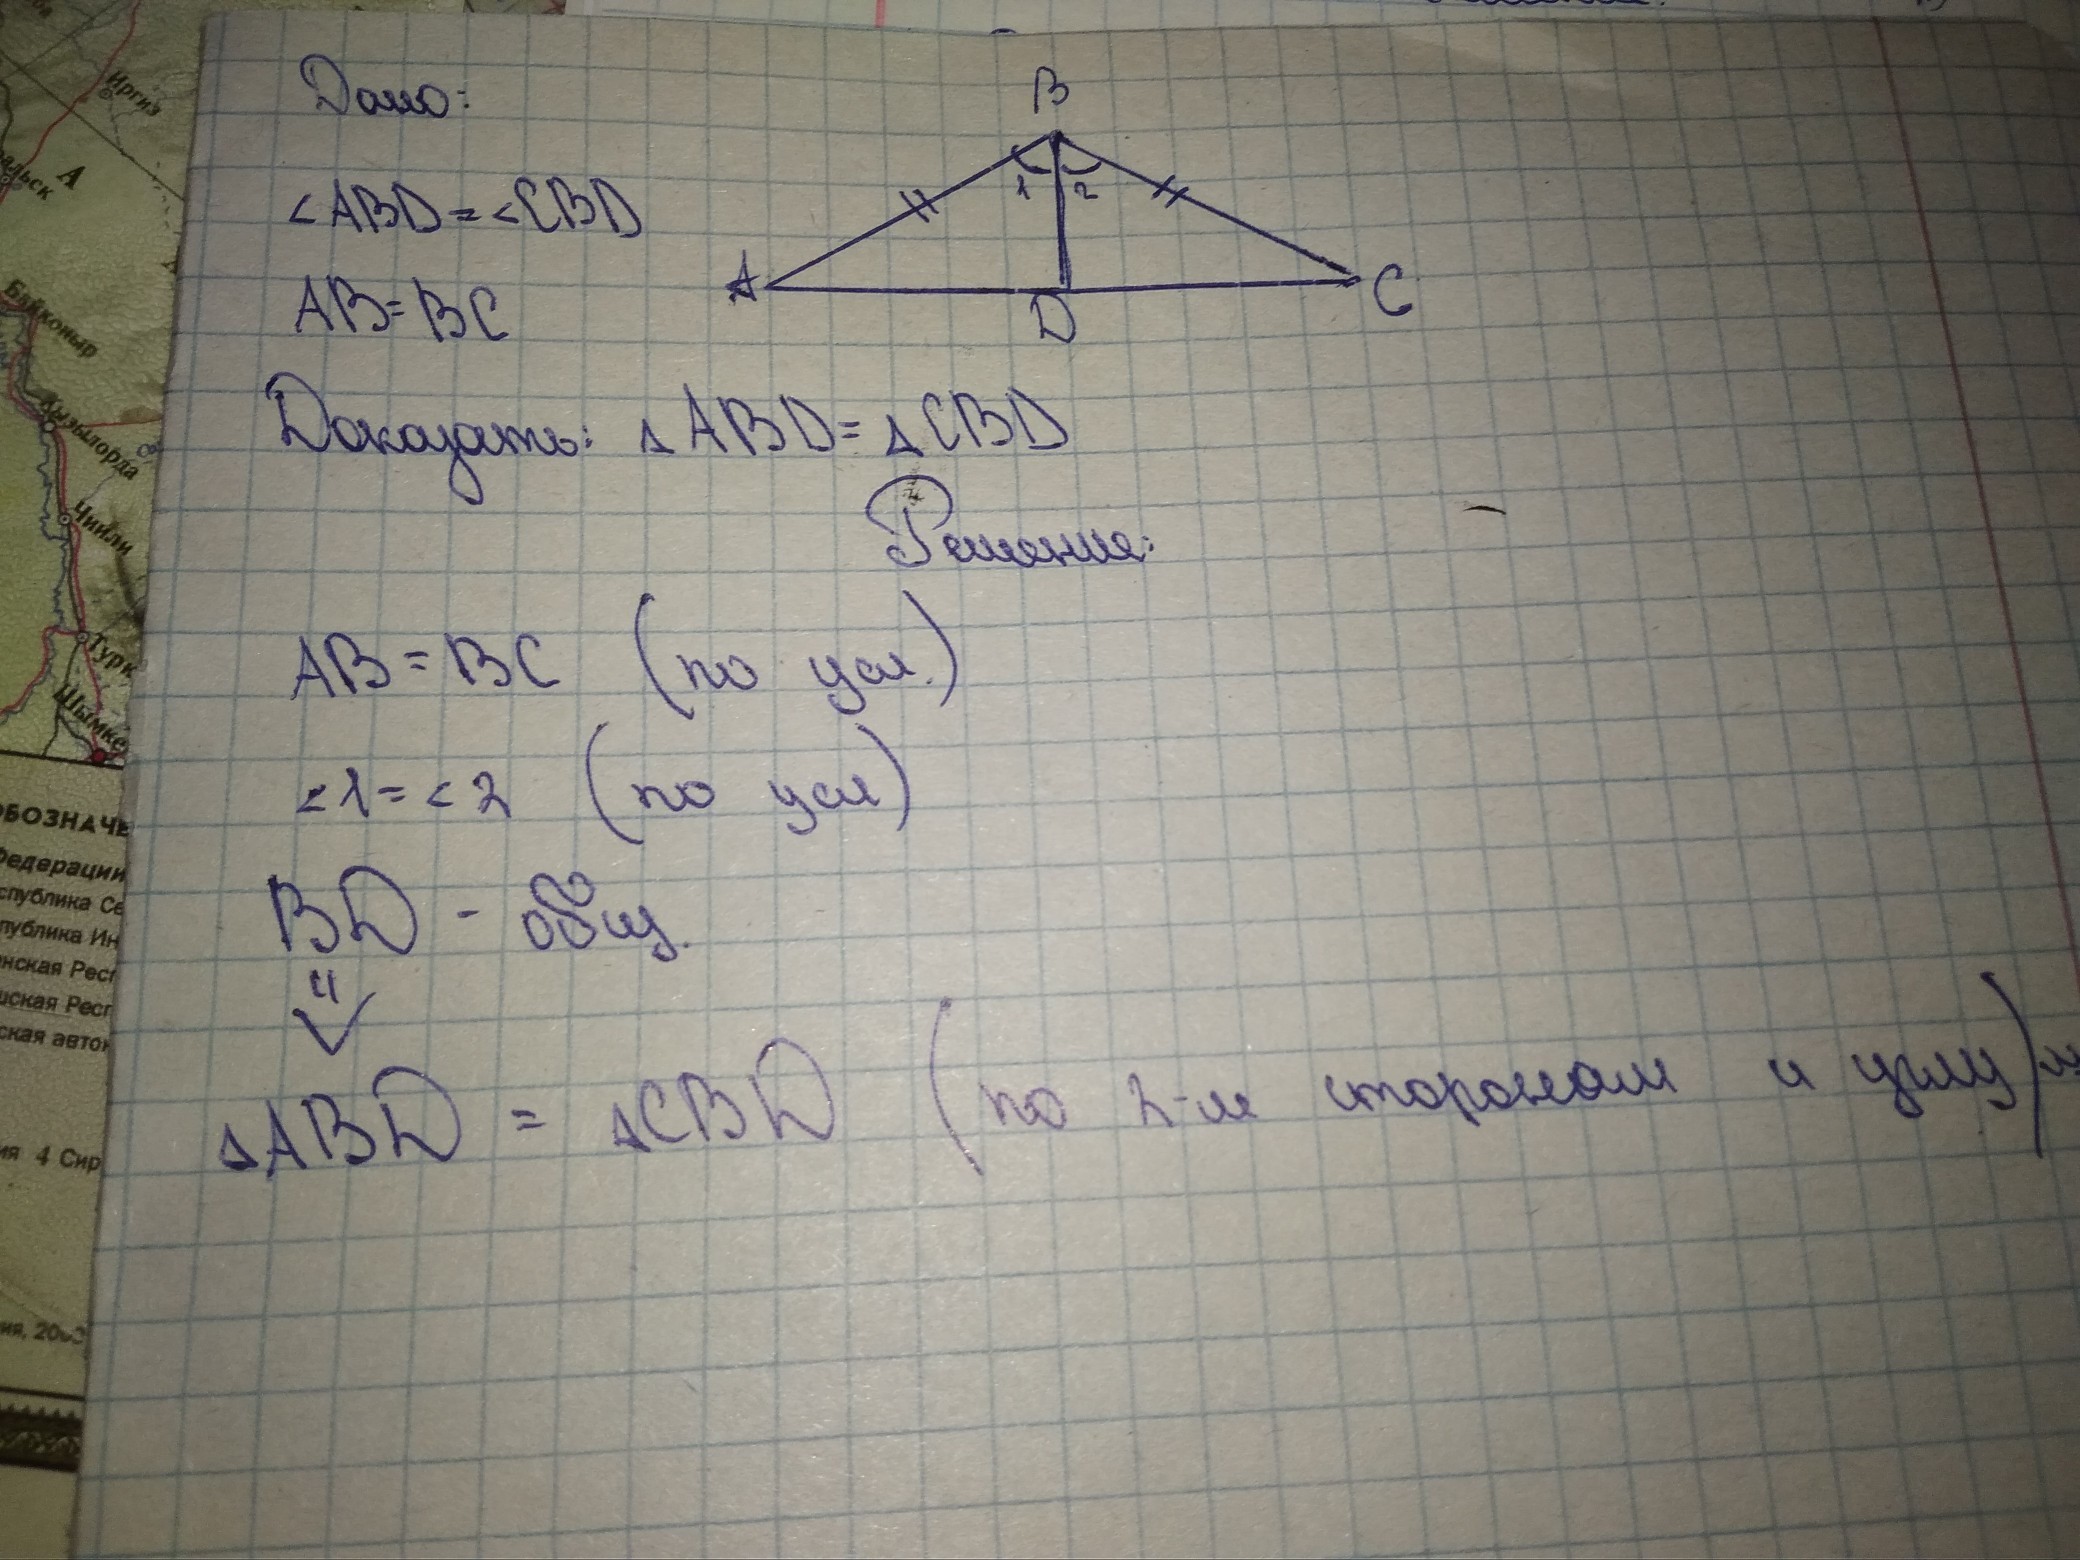 Иргиз
альск
А
Байконыр
Кызылорда
Чиили
Турк
Шымке
ОБОЗНАЧЕ
Федерации
спублика Се
публика Ин
нская Респ
шская Респ
ская автон
ия 4 Сир
ия, 2003
Дано:
B
<ABD=<CBD
1 2
AB=BC
A
D
C
Доказать: ΔABD=ΔCBD
Решение:
AB=BC (по усл.)
<1=<2 (по усл)
BD - общ.
ΔABD = ΔCBD (по 2-м сторонам и углу)